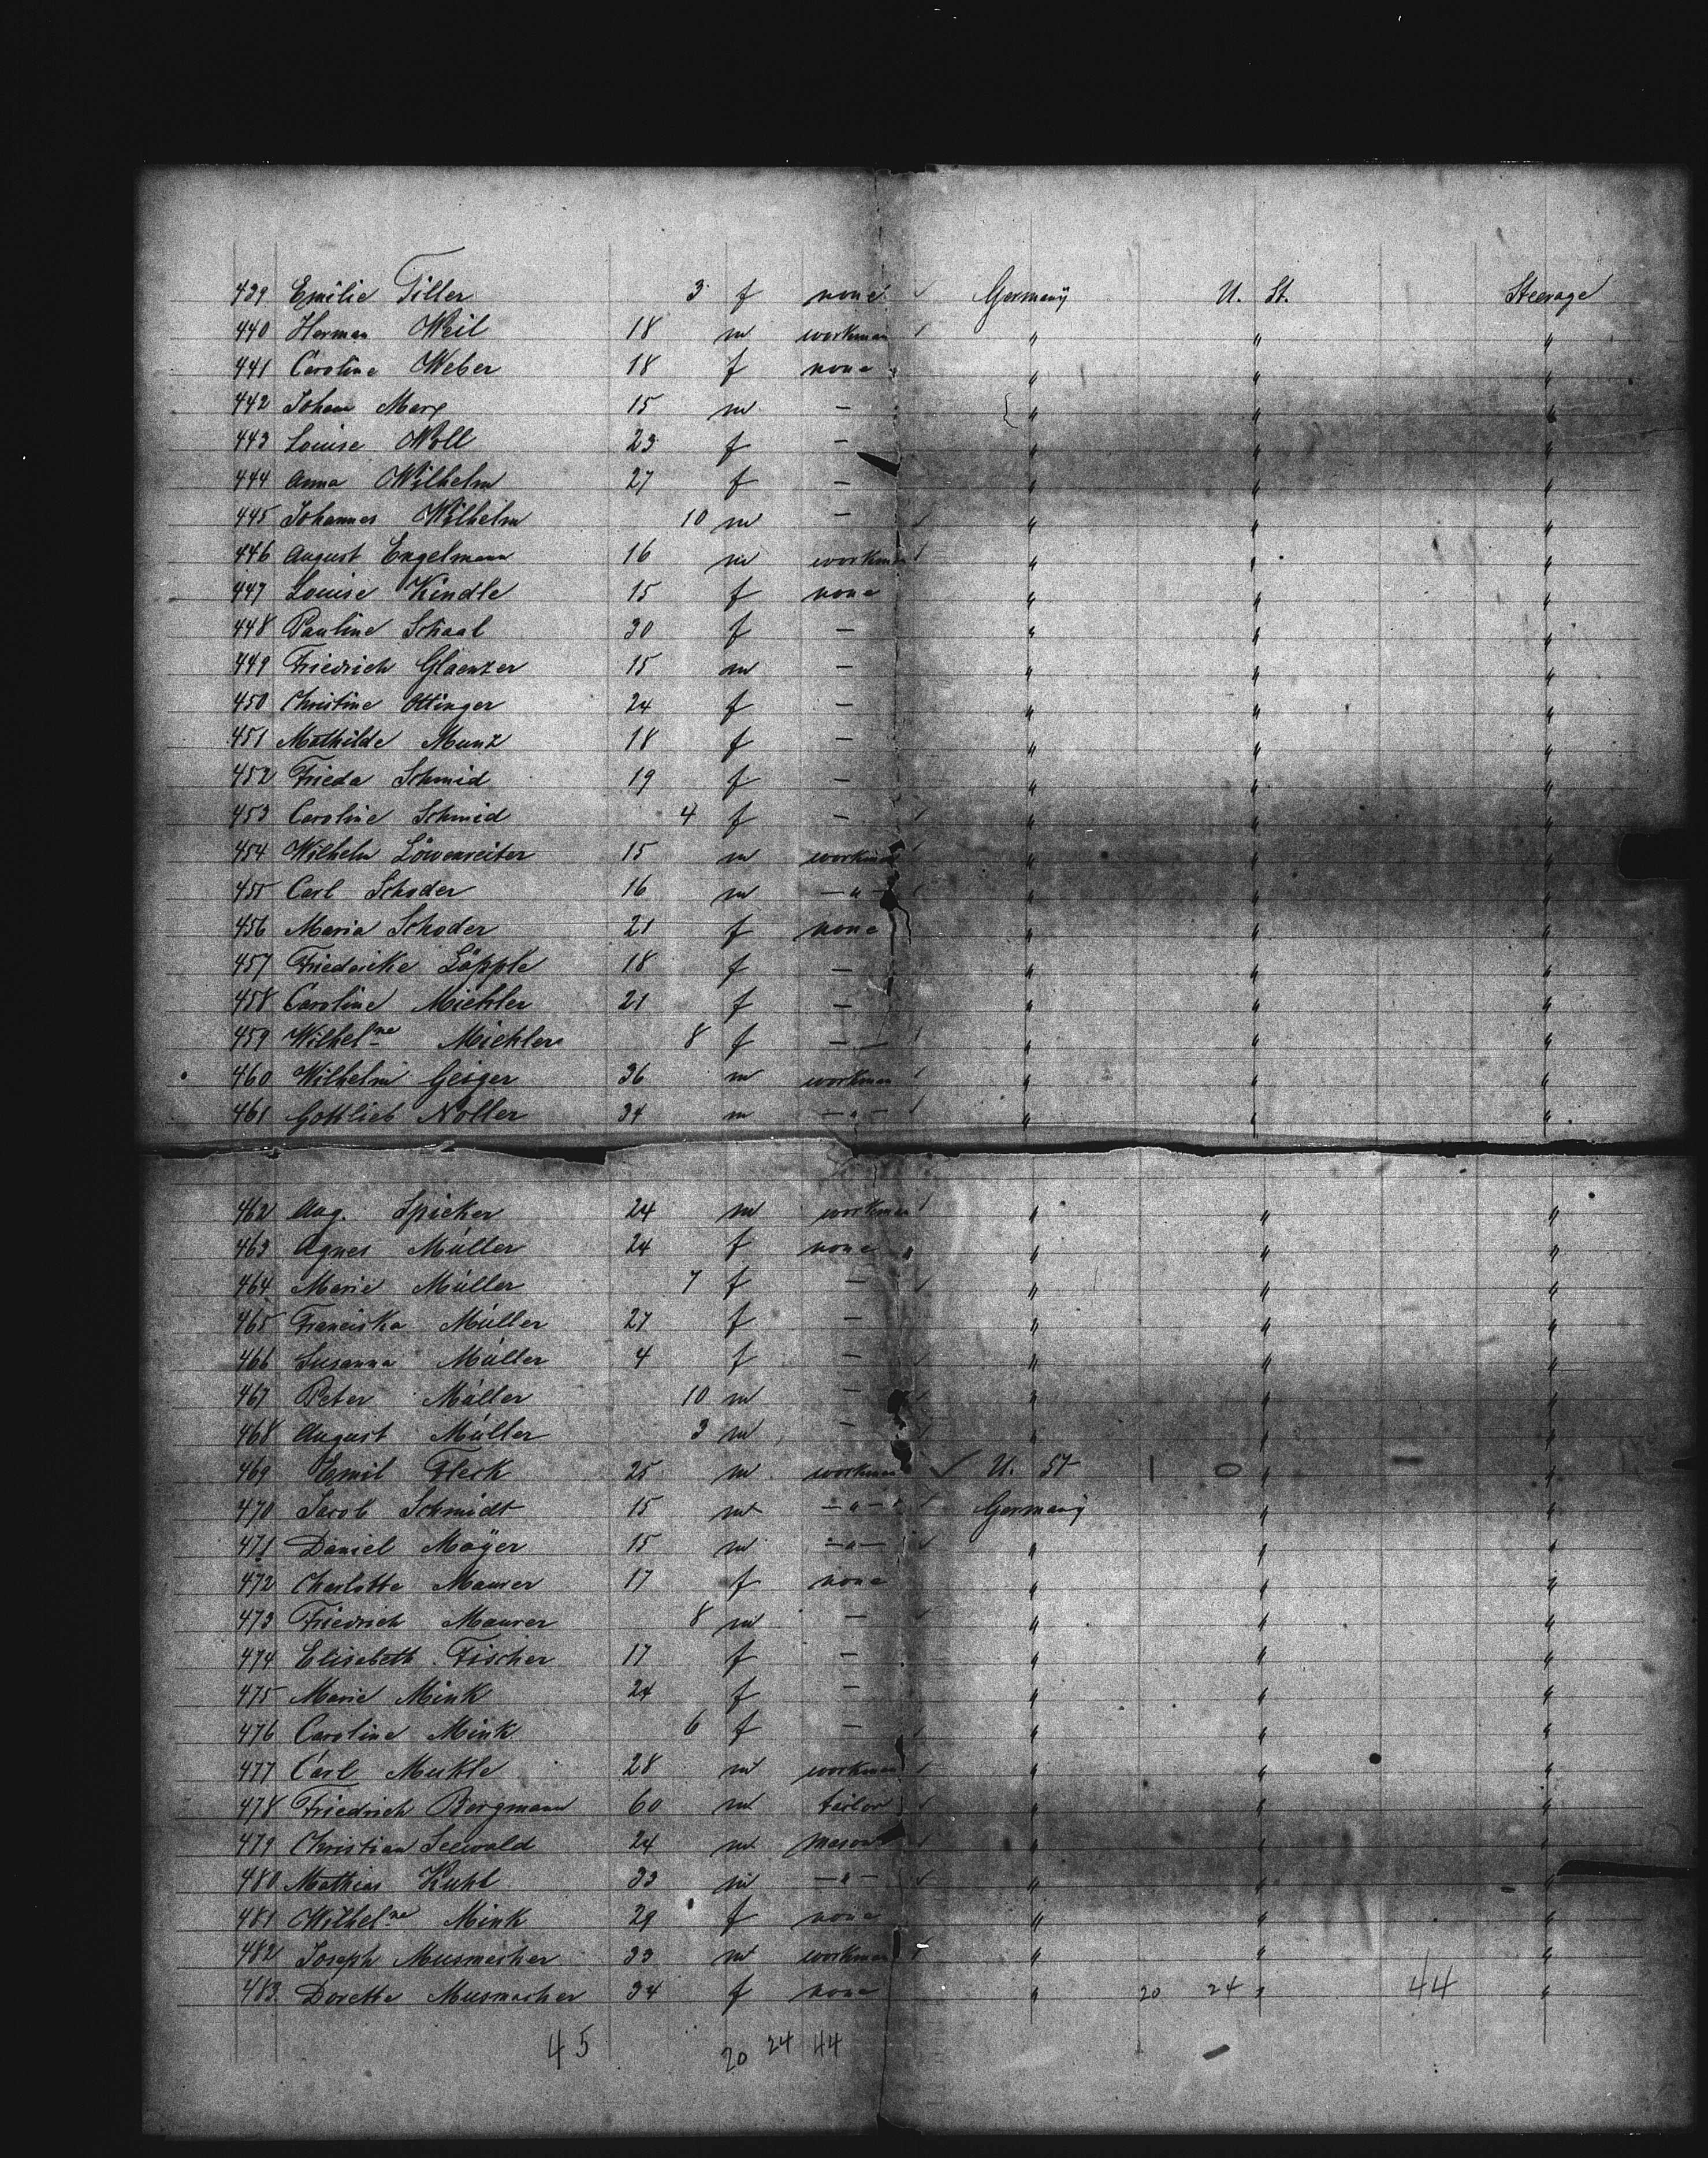 439 Emilie Tiller 3 f none ✓ Germany U. St. Steerage
440 Herman Weil 18 m workman ✓ " " "
441 Caroline Weber 18 f none " " "
442 Johann Marx 15 m — " " "
443 Louise Woll 23 f — " " "
444 Anna Wilhelm 27 f — " " "
445 Johannes Wilhelm 10 m — ✓ " " "
446 August Engelmann 16 m workman ✓ " " "
447 Louise Kindle 15 f none " " "
448 Pauline Schaal 30 f — " " "
449 Friedrich Glaenzer 15 m — " " "
450 Christine Ottinger 24 f — " " "
451 Mathilde Munz 18 f — " " "
452 Frieda Schmid 19 f — " " "
453 Caroline Schmid 4 f — ✓ " " "
454 Wilhelm Löwenreiter 15 m workman " " "
455 Carl Schoder 16 m — " — ✓ " " "
456 Maria Schoder 21 f none " " "
457 Friedericke Läpple 18 f — " " "
458 Caroline Michler 21 f — " " "
459 Wilhelne Michler 8 f — ✓ " " "
460 Wilhelm Geiger 36 m workman ✓ " " "
461 Gottlieb Noller 34 m — " — ✓ " " "
462 Aug. Spicker 24 m workman ✓ " " "
463 Agnes Müller 24 f none " " "
464 Marie Müller 7 f — ✓ " " "
465 Franciska Müller 27 f — " " "
466 Susanna Müller 4 f — ✓ " " "
467 Peter Müller 10 m — ✓ " " "
468 August Müller 3 m — ✓ " " "
469 Emil Fleck 25 m workman ✓ U. St 1 0 " — "
470 Jacob Schmidt 15 m — " — ✓ Germany " "
471 Daniel Mayer 15 m — " — ✓ " " "
472 Charlotte Maurer 17 f none " " "
473 Friedrich Maurer 8 m — ✓ " " "
474 Elisabeth Fischer 17 f — " " "
475 Marie Mink 24 f — " " "
476 Caroline Mink 6 f — ✓ " " "
477 Carl Mukle 28 m workman ✓ " " "
478 Friedrich Bergmann 60 m tailor ✓ " " "
479 Christian Seewald 24 m mason ✓ " " "
480 Mathias Kuhl 33 m — " — ✓ " " "
481 Wilhelne Mink 29 f none " " "
482 Joseph Musmacher 33 m workman ✓ " " "
483 Dorethe Musmacher 34 f none " 20 24 " 44 "
45 20 24 44